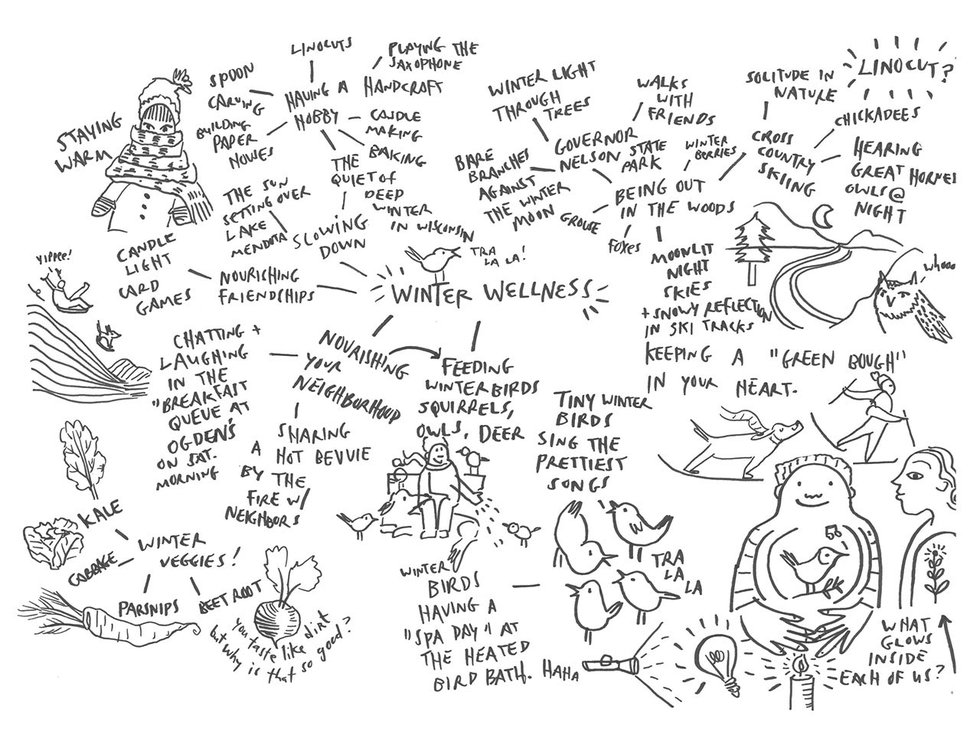 STAYING
WARM
SPOON
CARVING
BUILDING
PAPER
HOUSES
LINOCUTS
PLAYING THE
SAXOPHONE
HAVING A
HOBBY
HANDCRAFT
CANDLE
MAKING
BAKING
THE
QUIET OF
DEEP
WINTER
IN WISCONSIN
THE SUN
SETTING OVER
LAKE
MENDOTA
SLOWING
DOWN
CANDLE
LIGHT
CARD
GAMES
NOURISHING
FRIENDSHIPS
YIPPEE!
TRA
LA LA!
WINTER WELLNESS
WINTER LIGHT
THROUGH
TREES
BARE
BRANCHES
AGAINST
THE WINTER
MOON
GOVERNOR
NELSON STATE
PARK
WALKS
WITH
FRIENDS
WINTER
BERRIES
GROUSE
FOXES
BEING OUT
IN THE WOODS
SOLITUDE IN
NATURE
CROSS
COUNTRY
SKIING
LINOCUT?
CHICKADEES
HEARING
GREAT HORNED
OWLS @
NIGHT
MOONLIT
NIGHT
SKIES
+ SNOWY REFLECTION
IN SKI TRACKS
whooo
KEEPING A "GREEN BOUGH"
IN YOUR HEART.
CHATTING +
LAUGHING
IN THE
"BREAKFAST
QUEUE AT
OGDEN'S
ON SAT.
MORNING
NOURISHING
YOUR
NEIGHBORHOOD
SHARING
A HOT BEVVIE
BY THE
FIRE W/
NEIGHBORS
FEEDING
WINTER BIRDS
SQUIRRELS,
OWLS, DEER
TINY WINTER
BIRDS
SING THE
PRETTIEST
SONGS
TRA
LA
LA
KALE
CABBAGE
WINTER
VEGGIES!
PARSNIPS
BEET ROOT
You taste like dirt
but why is that so good?
WINTER
BIRDS
HAVING A
"SPA DAY" AT
THE HEATED
BIRD BATH. HAHA
WHAT
GLOWS
INSIDE
EACH OF US?